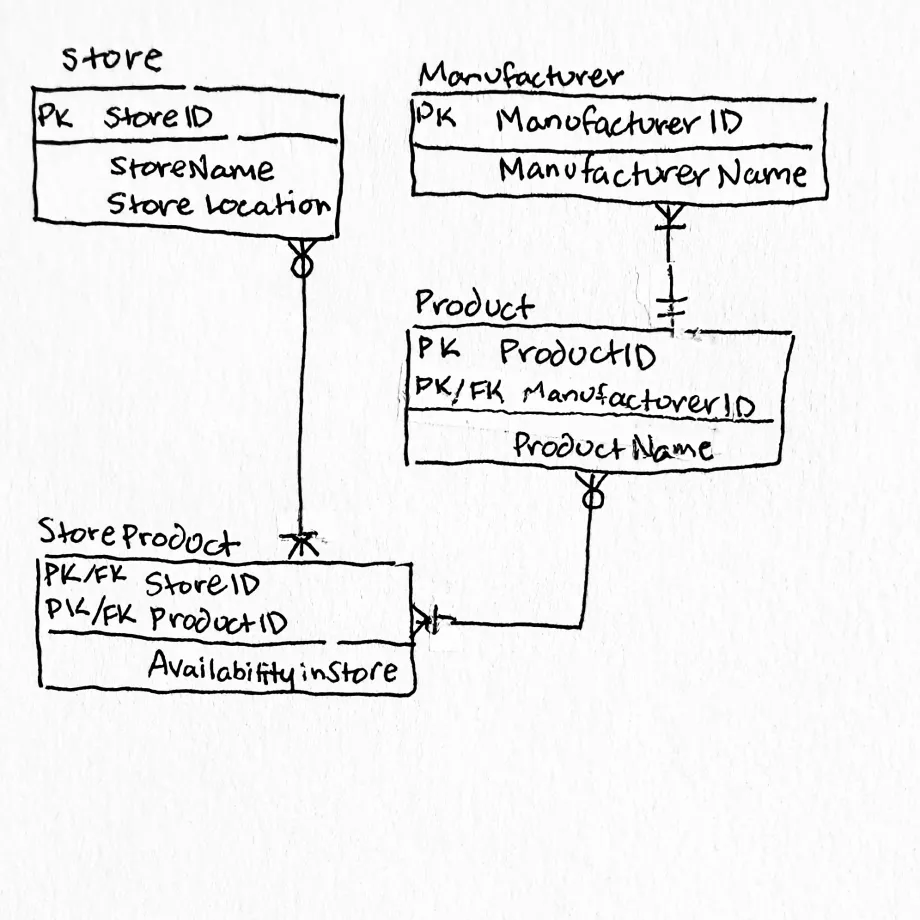 Store
PK StoreID
StoreName
Store Location
Manufacturer
PK Manufacturer ID
Manufacturer Name
Product
PK ProductID
PK/FK ManufacturerID
Product Name
StoreProduct
PK/FK StoreID
PK/FK ProductID
AvailabilityinStore